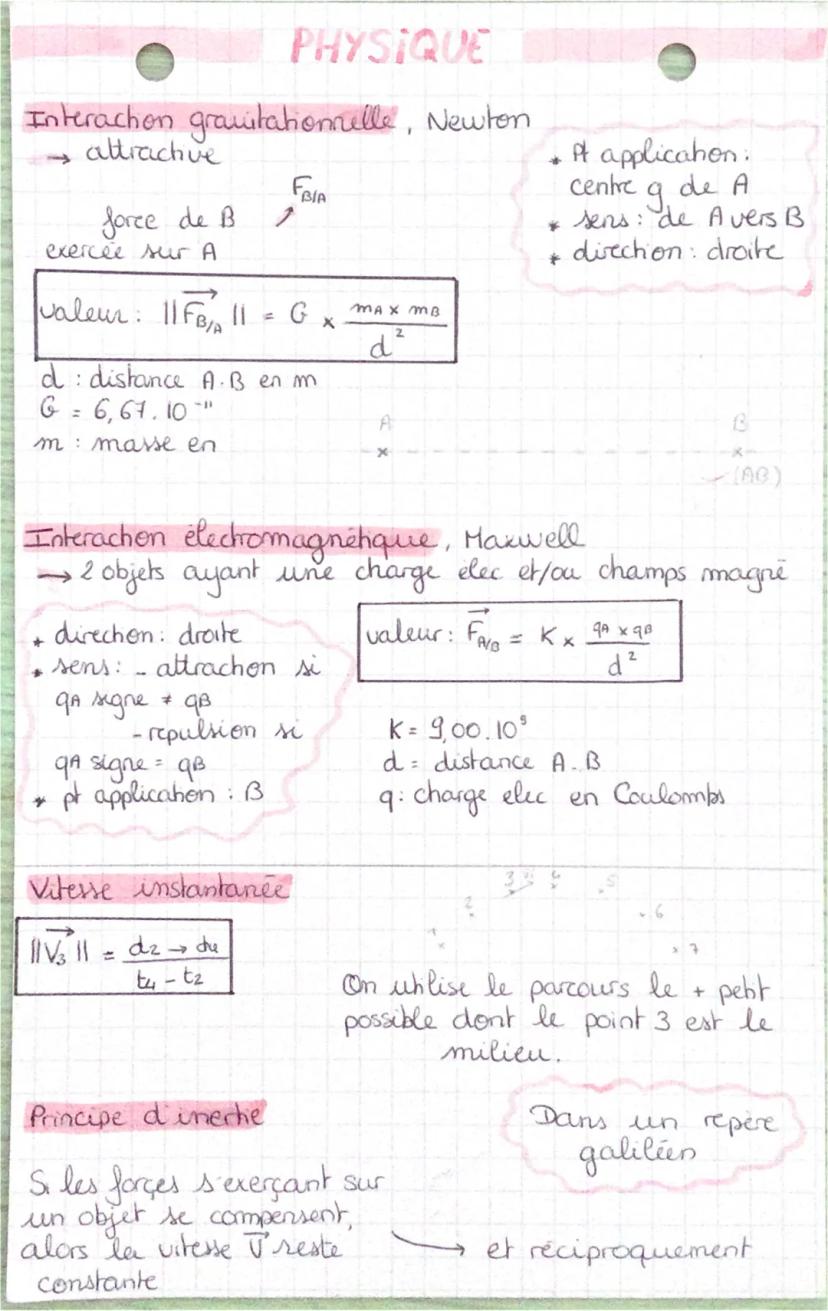 PHYSIQUE
Interaction gravitationnelle, Newton
→ attractive
* Pt application :
centre g de A
* sens : de A vers B
* direction : droite
F B/A
force de B ↗
exercée sur A
valeur : ||F B/A|| = G × mA × mB / d²
d : distance A.B en m
G = 6,67.10⁻¹¹
m : masse en
A B
x x
(AB)
Interaction électromagnétique, Maxwell
→ 2 objets ayant une charge élec et/ou champs magné
* direction : droite
* sens : - attraction si
qA signe ≠ qB
- repulsion si
qA signe = qB
* pt application : B
valeur : F A/B = K × qA × qB / d²
K = 9,00.10⁹
d = distance A.B
q : charge elec en Coulombs
Vitesse instantanée
||V₃|| = d2 → d4 / t4 - t2
2 3 5 6 7
On utilise le parcours le + petit
possible dont le point 3 est le
milieu.
Principe d'inertie
Dans un repère
galiléen
Si les forçes s'exerçant sur
un objet se compensent,
alors la vitesse V reste
constante
→ et réciproquement